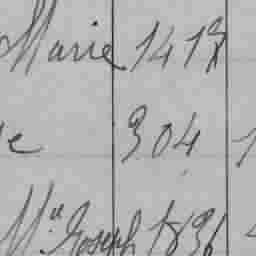 Marie 1418
e 304
Mⁿ Joseph 1836